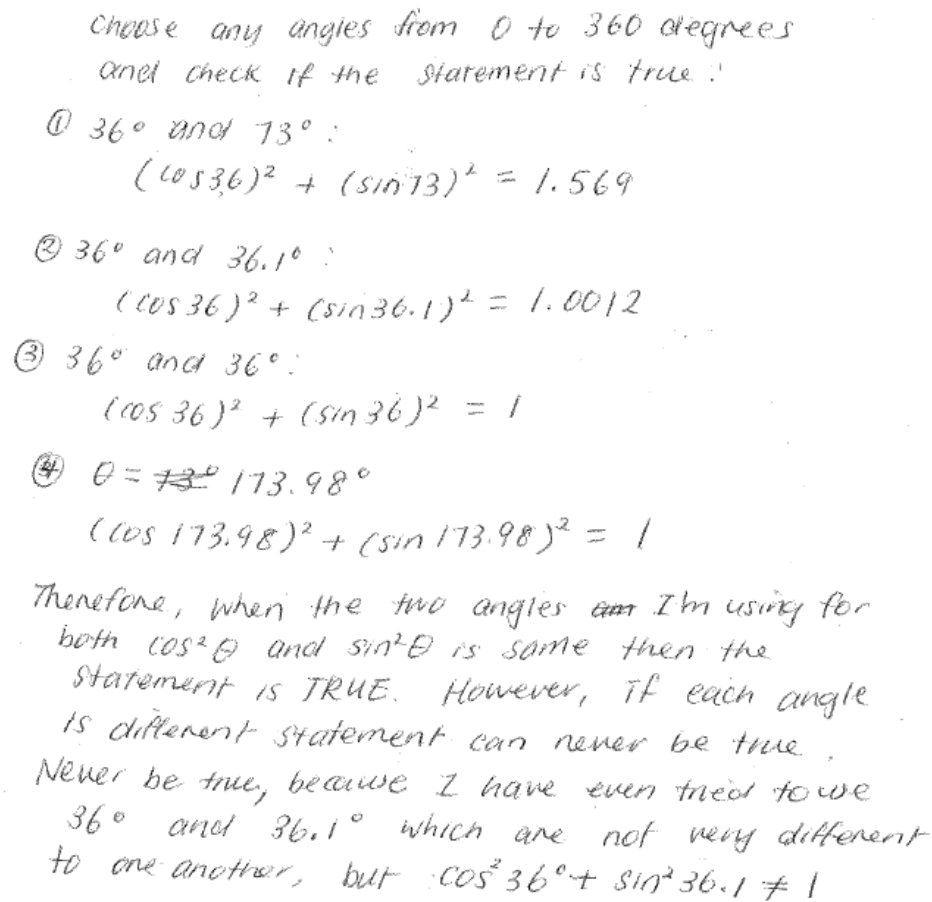 choose any angles from 0 to 360 degrees
and check if the statement is true:
① 36° and 73°:
(cos36)² + (sin73)² = 1.569
② 36° and 36.1°:
(cos36)² + (sin36.1)² = 1.0012
③ 36° and 36°:
(cos 36)² + (sin36)² = 1
④ θ = 73° 173.98°
(cos 173.98)² + (sin 173.98)² = 1
Therefore, when the two angles am I'm using for
both cos²θ and sin²θ is same then the
statement is TRUE. However, if each angle
is different statement can never be true.
Never be true, because I have even tried to use
36° and 36.1° which are not very different
to one another, but cos²36°+ sin²36.1 ≠ 1